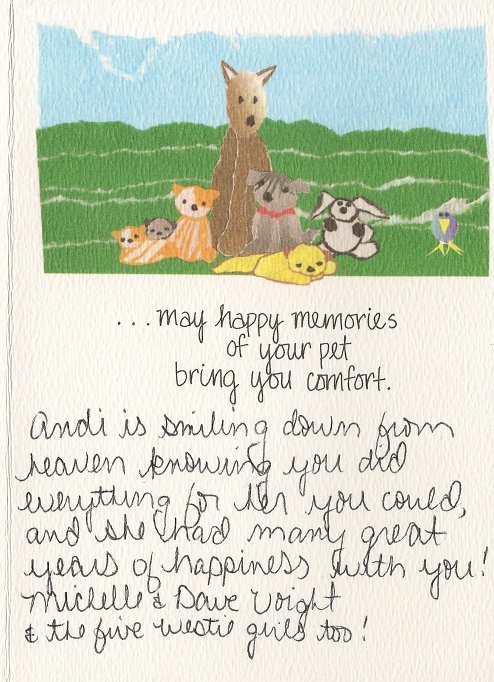 ...may happy memories
of your pet
bring you comfort.
Andi is smiling down from
heaven knowing you did
everything for her you could,
and she had many great
years of happiness with you!
Michelle & Dave Voight
& the five westie girls too!